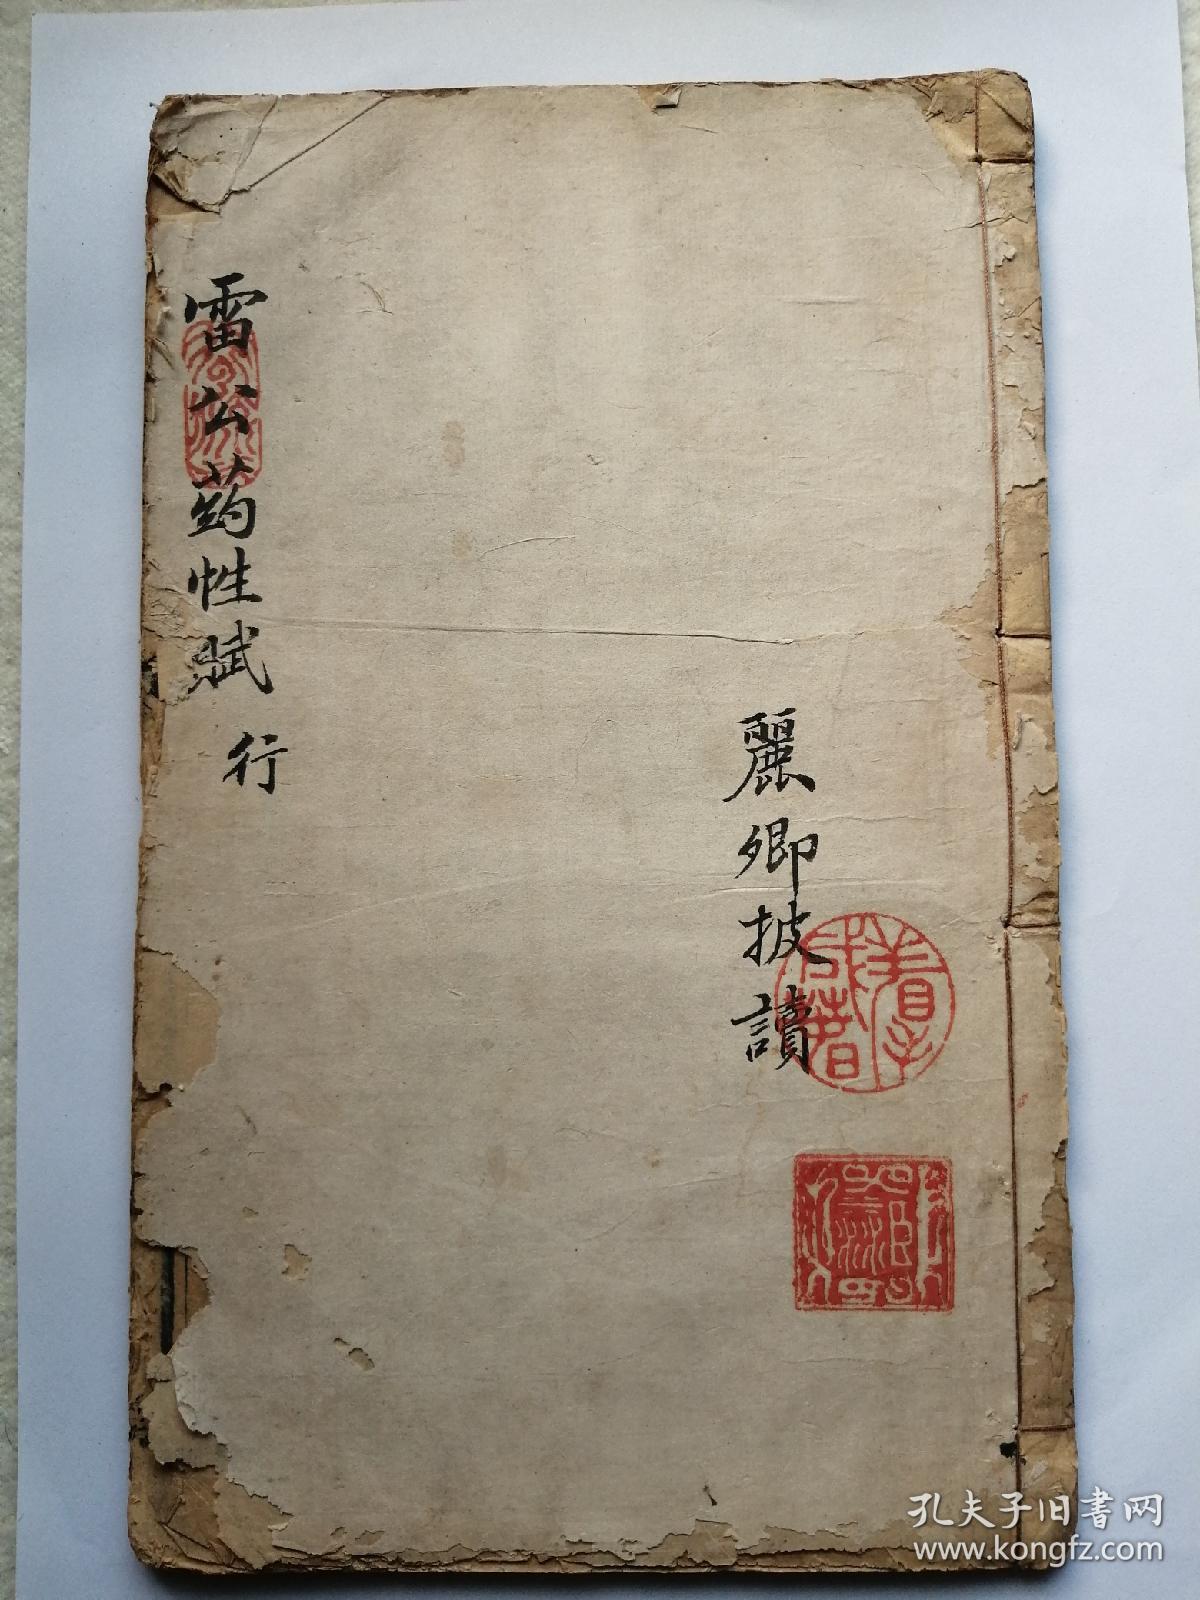 雷公药性賦 行
麗卿披讀
孔夫子旧書网
www.kongfz.com